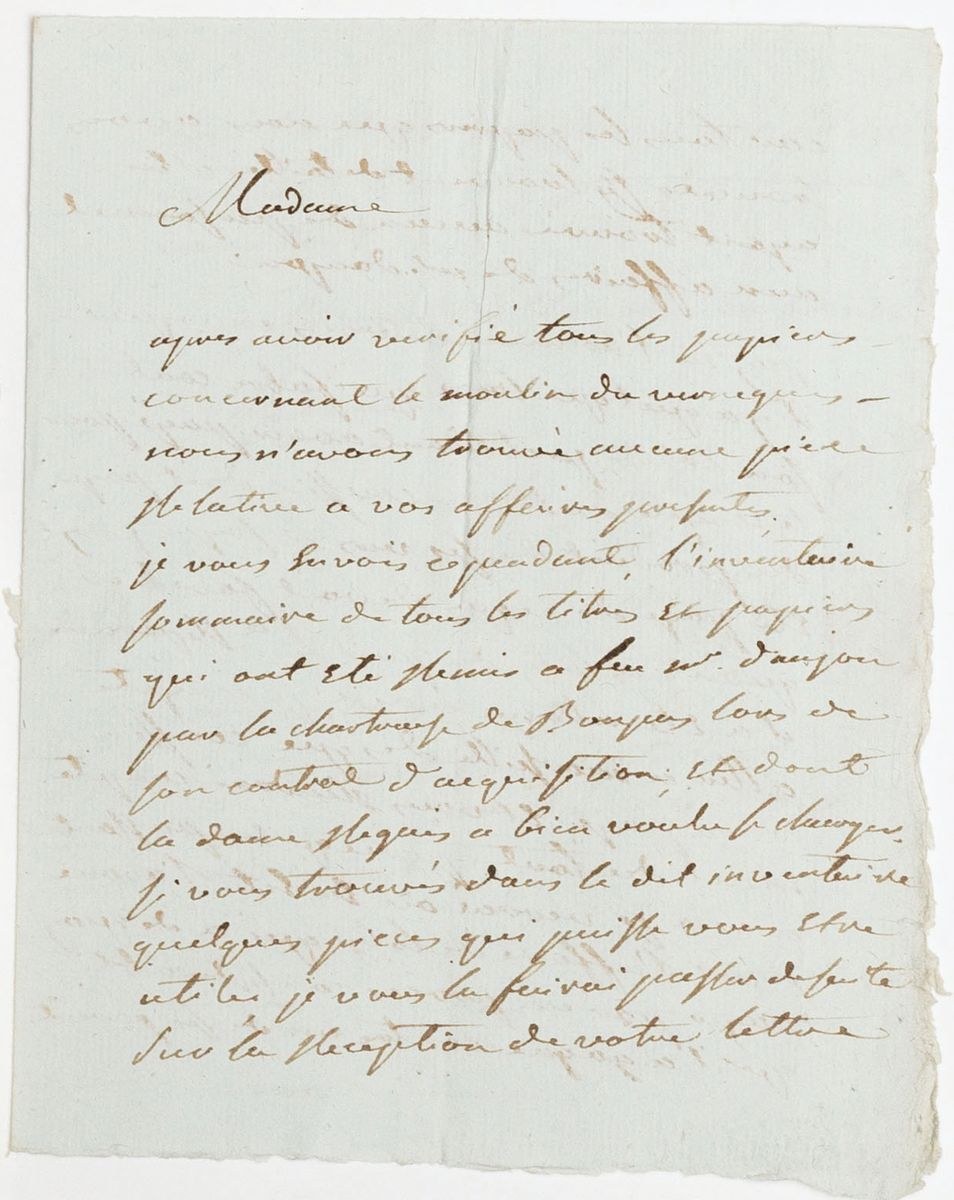 Madame
apres avoir verifié tous les papiers
concernant le moulin du vernegues
nous n'avons trouvée aucune piece
Relative a vos affeires presentes.
je vous Envois cependant, l'inventeire
sommaire de tous les titres Et papiers
qui ont Eté Remis a feu mr. d'anjou
par la chartreuse de Bonpas lors de
son contrat d'acquisition, Et dont
la dame a bien voulu se charger.
si vous trouvés dans le dit inventeire
quelques pieces qui puisse vous Etre
utiles je vous la feirai passer de suite
sur la Reception de votre lettre